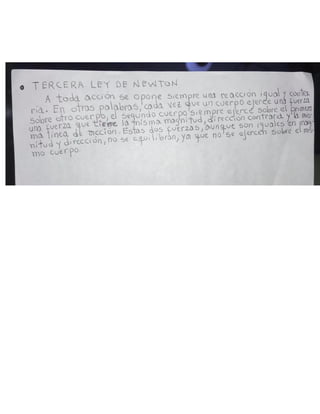 • TERCERA LEY DE NEWTON
A toda acción se opone siempre una reacción igual y contra
ria. En otras palabras, cada vez que un cuerpo ejerce una fuerza
sobre otro cuerpo, el segundo cuerpo siempre ejerce sobre el primero
una fuerza que tiene la misma magnitud, dirección contraria y la mis
ma línea de acción. Estas dos fuerzas, aunque son iguales en mag
nitud y dirección, no se equilibran, ya que no se ejercen sobre el mis
mo cuerpo.